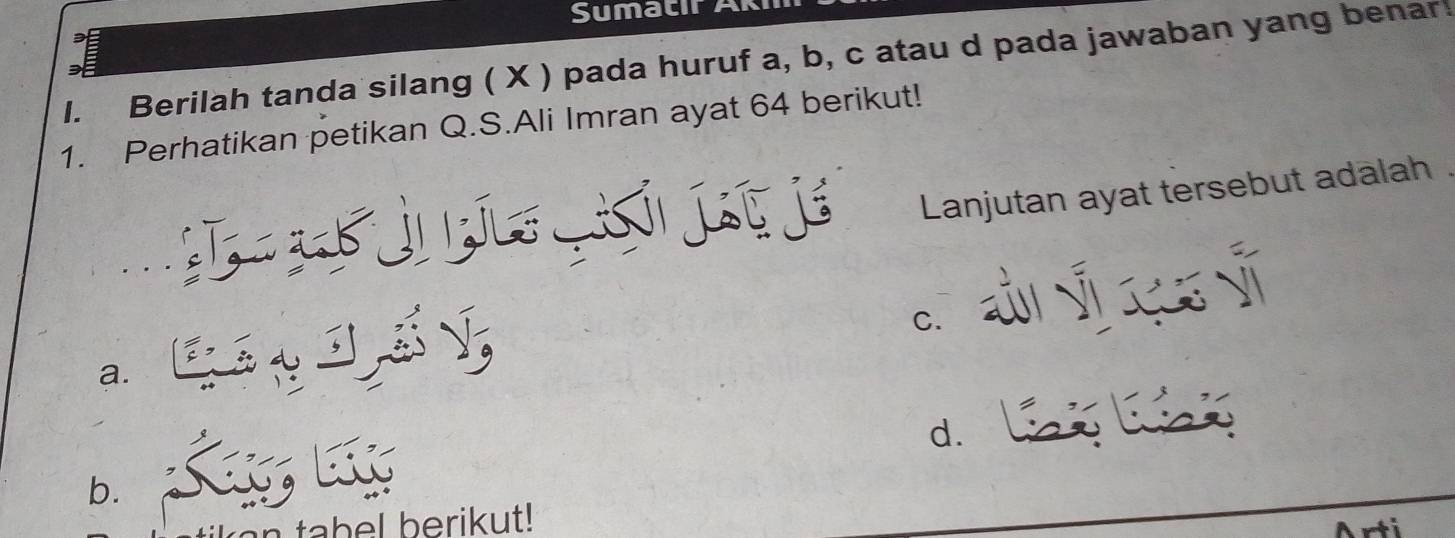 I. Berilah tanda silang ( X ) pada huruf a, b, c atau d pada jawaban yang benar!
1. Perhatikan petikan Q.S.Ali Imran ayat 64 berikut!
قُلْ يٰٓاَهْلَ الْكِتٰبِ تَعَالَوْا اِلٰى كَلِمَةٍ سَوَاۤءٍۢ . . . Lanjutan ayat tersebut adalah .
a. وَلَا نُشْرِكَ بِهٖ شَيْـًٔا
b. بَيْنَنَا وَبَيْنَكُمْ
c. اَلَّا نَعْبُدَ اِلَّا اللّٰهَ
d. بَعْضُنَا بَعْضًا
tabel berikut!
Arti